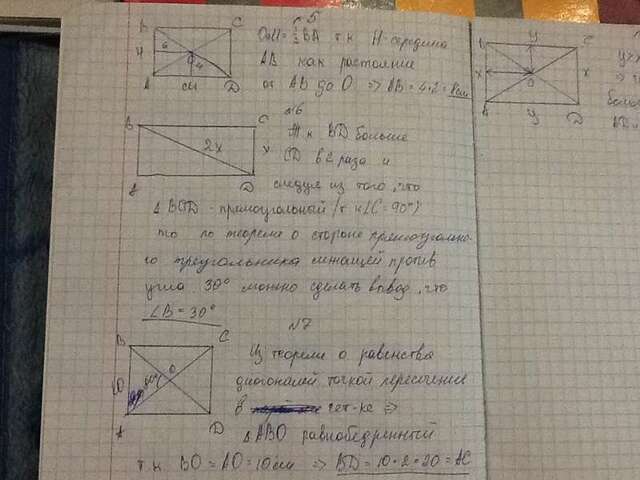 5
B
C
6
O
4
A
D
см
OH = 1/2 BA т.к H-середина
AB как растояние
от AB до O => AB = 4·2 = 8см
N6
B
C
2x
x
A
D
т к BD больше
CD в 2 раза и
следуя из того, что
Δ BCD - прямоугольный (т к ∠C = 90°)
то по теореме о стороне прямоугольно-
го треугольника лежащей против
угла 30° можно сделать вывод, что
∠B = 30°
N7
B
C
10
60°
O
A
D
Из теоремы о равенства
диагоналей точкой пересечения
в чет-ке =>
Δ ABO равнобедренный
т.к BO = AO = 10 см => BD = 10·2 = 20 = AC
y
C
x
O
x
y
D